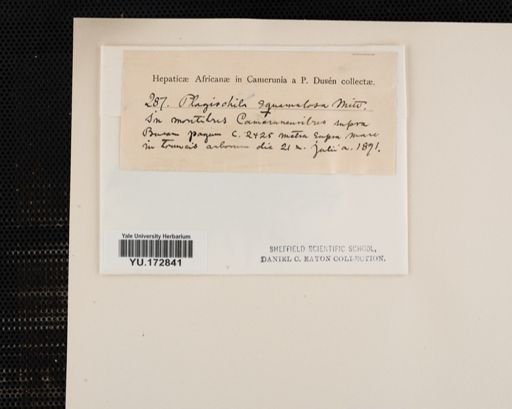 Hepaticæ Africanæ in Camerunia a P. Dusén collectæ.
287. Plagiochila squamulosa Mitt.
In montibus Camerunensibus supra
Bueam pagum c. 2425 metra supra mare
in truncis arborum die 21 m. julii a. 1891.
Yale University Herbarium
YU.172841
SHEFFIELD SCIENTIFIC SCHOOL,
DANIEL C. EATON COLLECTION.